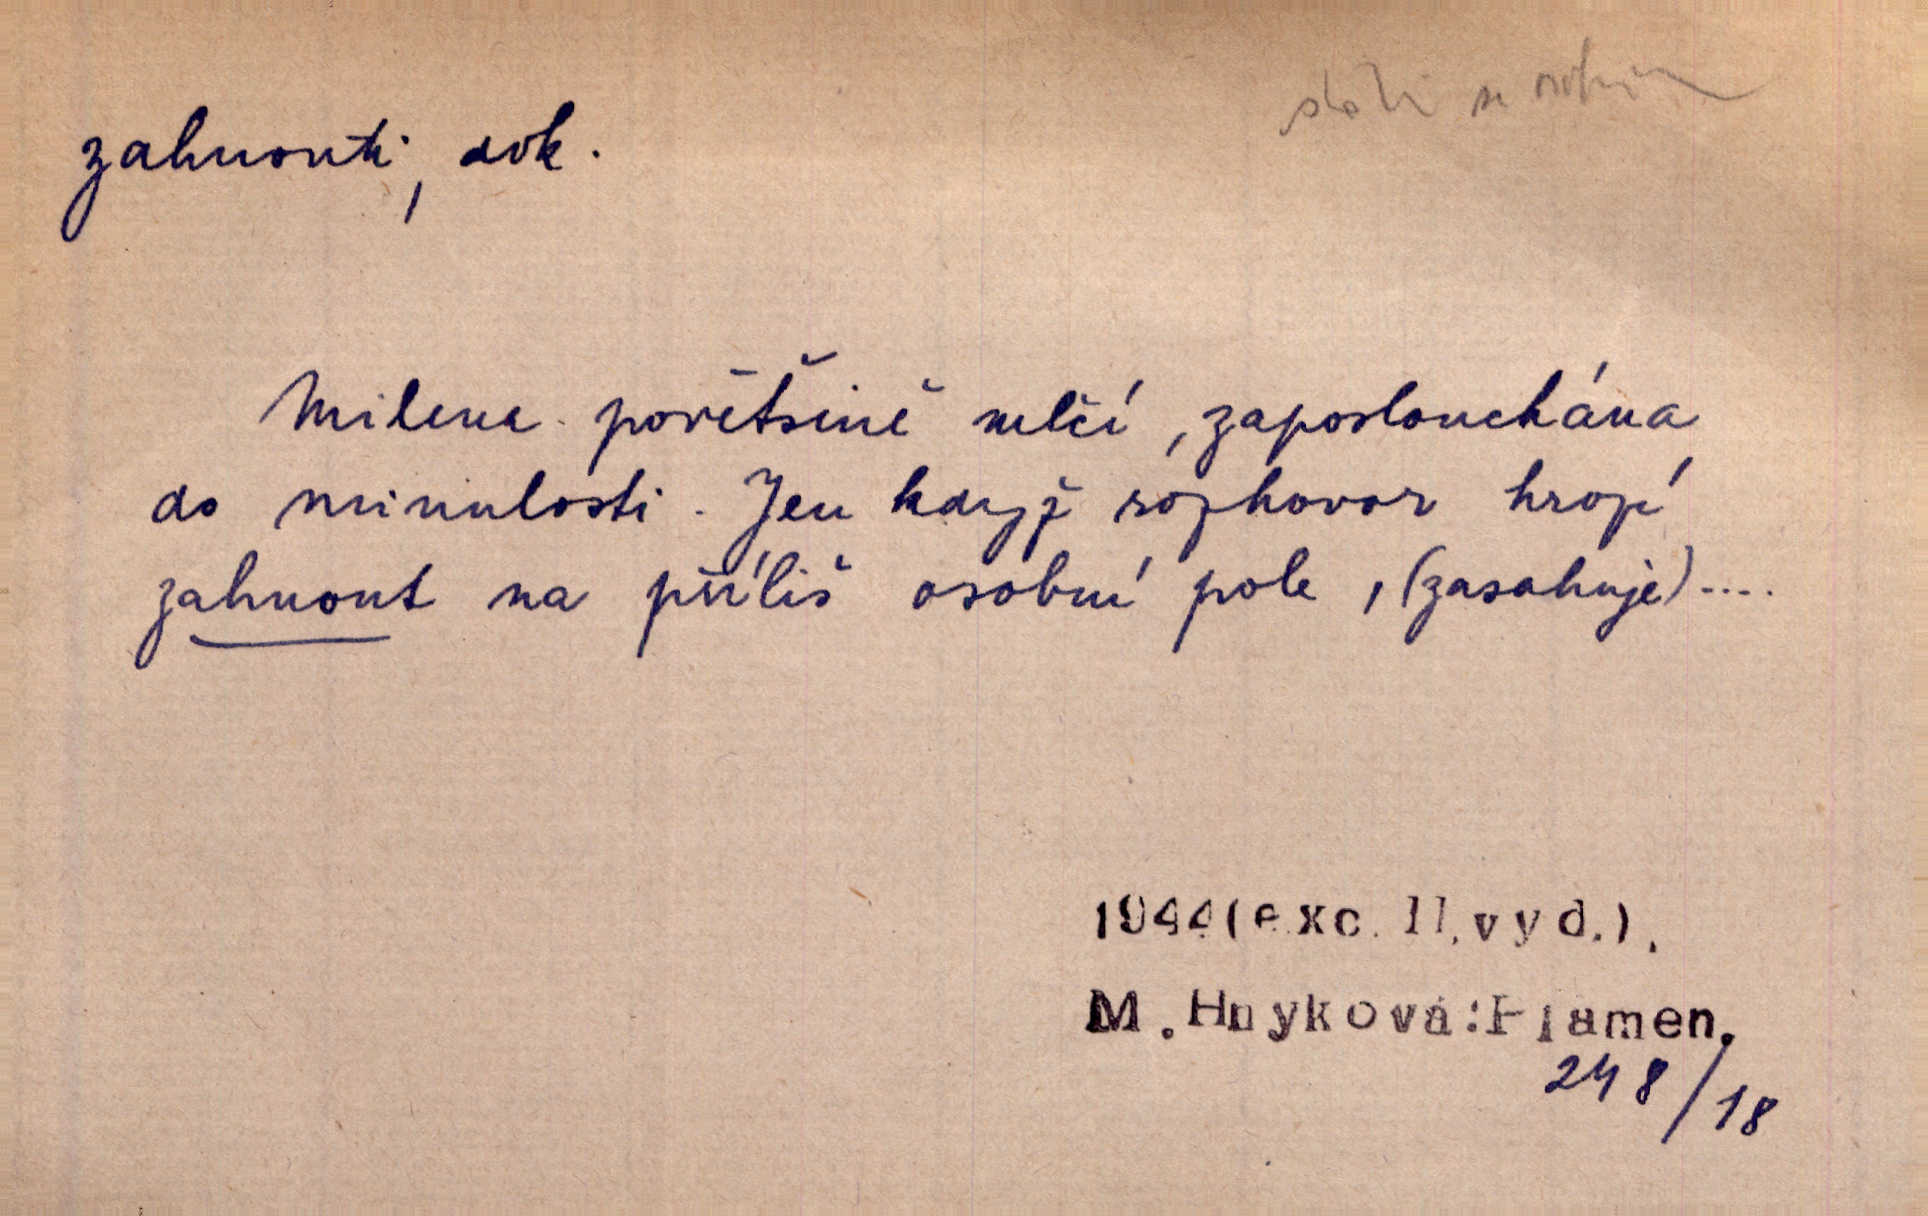 zahnouti, dok.
Milena povětšině mlčí, zaposlouchána
do minulosti. Jen když rozhovor hrozí
zahnout na příliš osobní pole, (zasahuje)....
1944(exc.II.vyd.).
M.Hnyková:Plamen.
248/18